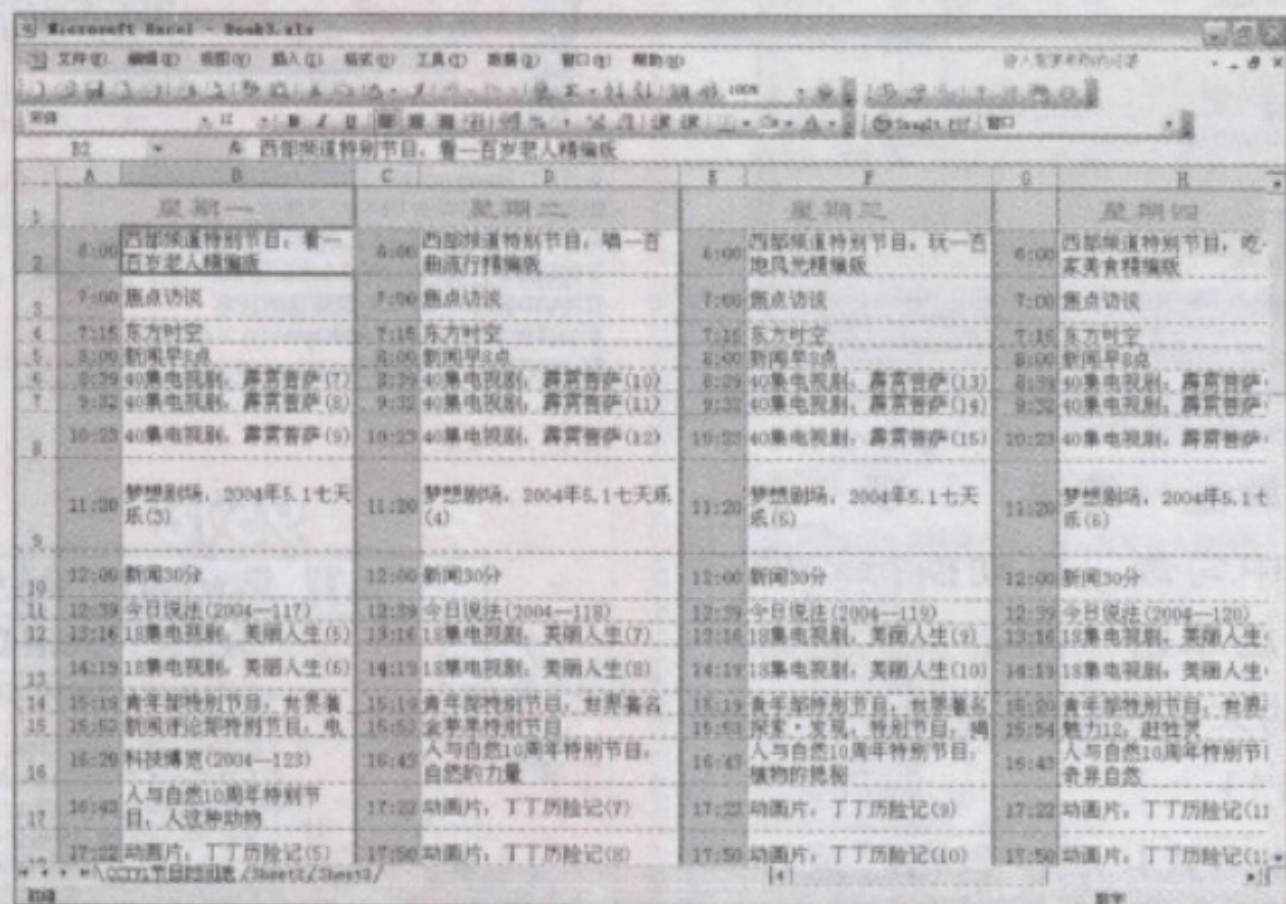 Microsoft Excel - Book3.xls
文件(F) 编辑(E) 视图(V) 插入(I) 格式(O) 工具(T) 数据(D) 窗口(W) 帮助(H)
宋体 12 B I U SnagIt 窗口
B2 西部频道特别节目，看一百岁老人精编版
A B C D E F G H
1 星期一 星期二 星期三 星期四
2 6:00 西部频道特别节目，看一百岁老人精编版 6:00 西部频道特别节目，唱一百曲流行精编版 6:00 西部频道特别节目，玩一百地风光精编版 6:00 西部频道特别节目，吃 家美食精编版
3 7:00 焦点访谈 7:00 焦点访谈 7:00 焦点访谈 7:00 焦点访谈
4 7:15 东方时空 7:15 东方时空 7:15 东方时空 7:15 东方时空
5 8:00 新闻早8点 8:00 新闻早8点 8:00 新闻早8点 8:00 新闻早8点
6 8:39 40集电视剧，霹雳菩萨(7) 8:39 40集电视剧，霹雳菩萨(10) 8:39 40集电视剧，霹雳菩萨(13) 8:39 40集电视剧，霹雳菩萨
7 9:32 40集电视剧，霹雳菩萨(8) 9:32 40集电视剧，霹雳菩萨(11) 9:32 40集电视剧，霹雳菩萨(14) 9:32 40集电视剧，霹雳菩萨
8 10:23 40集电视剧，霹雳菩萨(9) 10:23 40集电视剧，霹雳菩萨(12) 10:23 40集电视剧，霹雳菩萨(15) 10:23 40集电视剧，霹雳菩萨
9 11:20 梦想剧场，2004年5.1七天乐(3) 11:20 梦想剧场，2004年5.1七天乐(4) 11:20 梦想剧场，2004年5.1七天乐(5) 11:20 梦想剧场，2004年5.1七 乐(6)
10 12:00 新闻30分 12:00 新闻30分 12:00 新闻30分 12:00 新闻30分
11 12:39 今日说法(2004--117) 12:39 今日说法(2004--118) 12:39 今日说法(2004--119) 12:39 今日说法(2004--120)
12 13:16 18集电视剧，美丽人生(5) 13:16 18集电视剧，美丽人生(7) 13:16 18集电视剧，美丽人生(9) 13:16 18集电视剧，美丽人生
13 14:19 18集电视剧，美丽人生(6) 14:19 18集电视剧，美丽人生(8) 14:19 18集电视剧，美丽人生(10) 14:19 18集电视剧，美丽人生
14 15:19 青年部特别节目，世界著 15:19 青年部特别节目，世界著名 15:19 青年部特别节目，世界著名 15:20 青年部特别节目，世界
15 15:53 新闻评论部特别节目，电 15:53 金苹果特别节目 15:53 探索·发现，特别节目，揭 15:54 魅力12，赶牡灵
16 16:29 科技博览(2004--123) 16:43 人与自然10周年特别节目，自然的力量 16:43 人与自然10周年特别节目，植物的绝秘 16:43 人与自然10周年特别节 奇异自然
17 16:43 人与自然10周年特别节目，人这种动物 17:22 动画片，丁丁历险记(7) 17:22 动画片，丁丁历险记(9) 17:22 动画片，丁丁历险记(11
17:22 动画片，丁丁历险记(5) 17:50 动画片，丁丁历险记(8) 17:50 动画片，丁丁历险记(10) 17:50 动画片，丁丁历险记(1
CCTV1节目时间表 Sheet2 Sheet3
就绪 数字